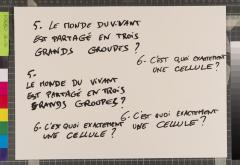 5. LE MONDE DU VIVANT
EST PARTAGÉ EN TROIS
GRANDS GROUPES?
6- C'EST QUOI EXACTEMENT
UNE CELLULE?
5.
LE MONDE DU VIVANT
EST PARTAGÉ EN TROIS
GRANDS GROUPES?
6- C'EST QUOI EXACTEMENT
UNE CELLULE?
6- C'EST QUOI EXACTEMENT
UNE CELLULE?